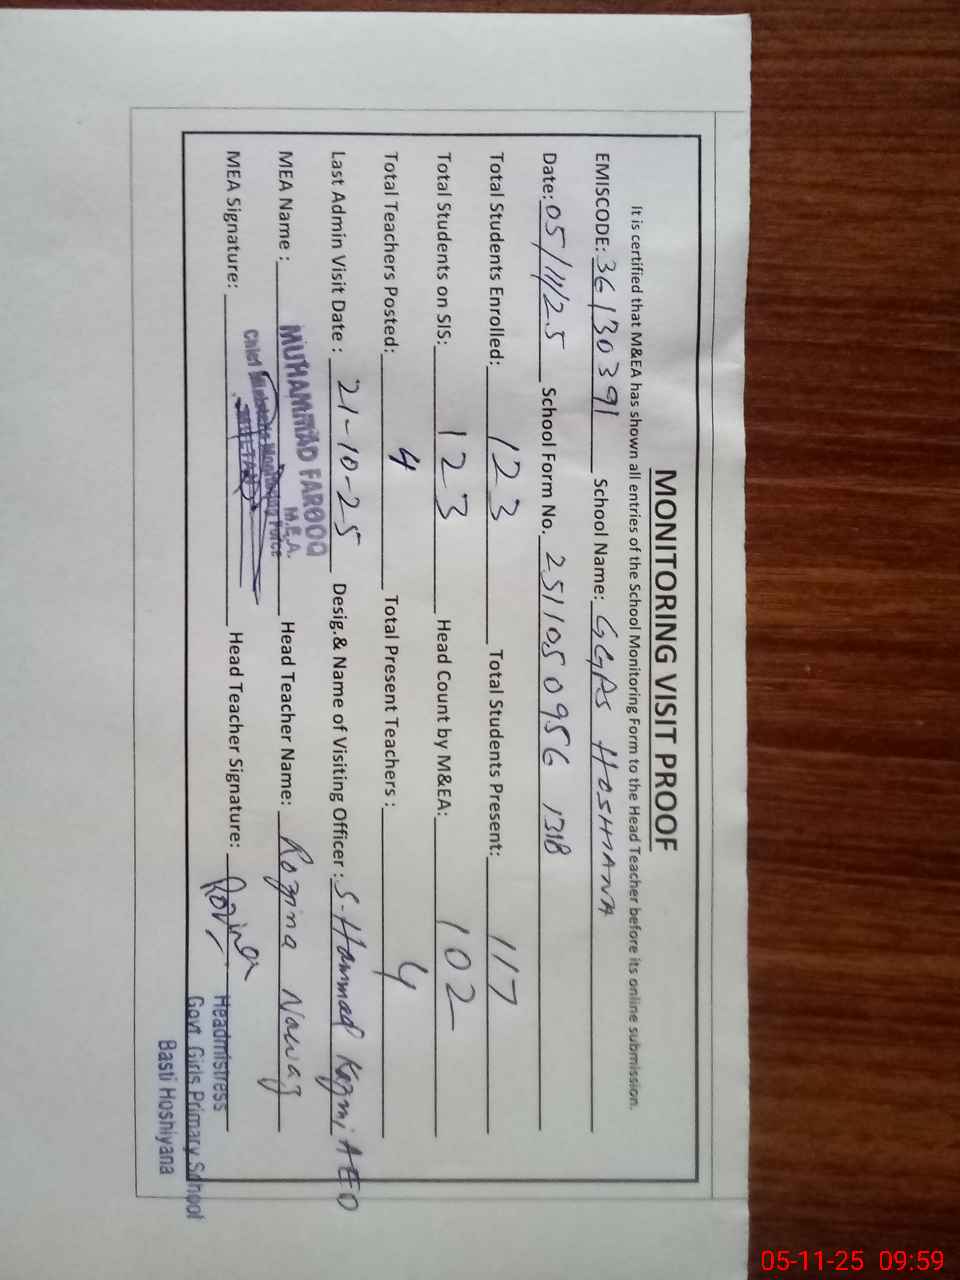 MONITORING VISIT PROOF
It is certified that M&EA has shown all entries of the School Monitoring Form to the Head Teacher before its online submission.
EMISCODE: 36130391 School Name: GGPS HOSHIANA
Date: 05/11/25 School Form No. 251105 0956 1318
Total Students Enrolled: 123 Total Students Present: 117
Total Students on SIS: 123 Head Count by M&EA: 102
Total Teachers Posted: 4 Total Present Teachers : 4
Last Admin Visit Date : 21-10-25 Desig.& Name of Visiting Officer : S-Hammad Kazmi AEO
MEA Name : MUHAMMAD FAROOQ Head Teacher Name: Rozina Nawaz
M.E.A.
Chief Minister's Monitoring Force
MEA Signature: Head Teacher Signature: Rozina
Headmistress
Govt Girls Primary School
Basti Hoshiyana
05-11-25 09:59